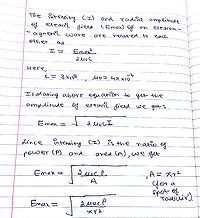 The intensity (I) and radio amplitude
of electric field (Emax) of an electrom-
-agnetic wave are related to each
other as
I = Emax² / 2μ0C
Here,
C = 3×10⁸, μ0 = 4π×10⁻⁷
Isolating above equation to get the
amplitude of electric field we get
Emax = √2μ0CI
Since intensity (I) is the ratio of
power (P) and area (A), we get
Emax = √(2μ0CP / A) , A = πr²
(for a
spot of
radius(r))
Emax = √(2μ0CP / πr²)